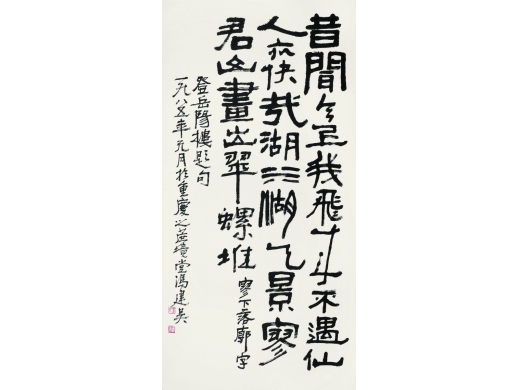 昔聞今上我飛來不遇仙
人亦快哉湖水湖景寥
君山畫出翠螺堆 寥下落廓字
登岳陽樓題句
一九八五年元月於重慶之境堂馮建吳